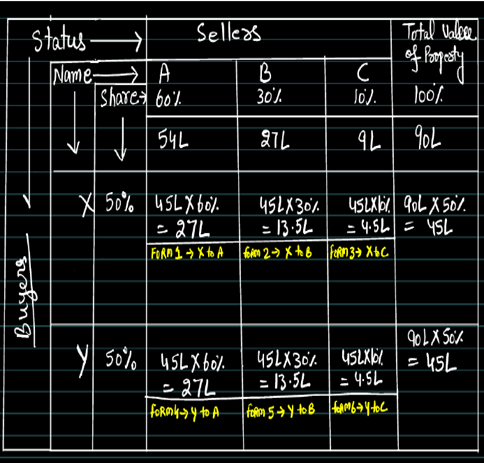 Status → Sellers Total Value of Property
Name → A B C
Share → 60% 30% 10% 100%
54L 27L 9L 90L
Buyers
X 50% 45L X 60% 45L X 30% 45L X 10% 90L X 50%
= 27L = 13.5L = 4.5L = 45L
FORM 1 → X to A form 2 → X to B FORM 3 → X to C
Y 50% 45L X 60% 45L X 30% 45L X 10% 90L X 50%
= 27L = 13.5L = 4.5L = 45L
form 4 → Y to A FORM 5 → Y to B form 6 → Y to C